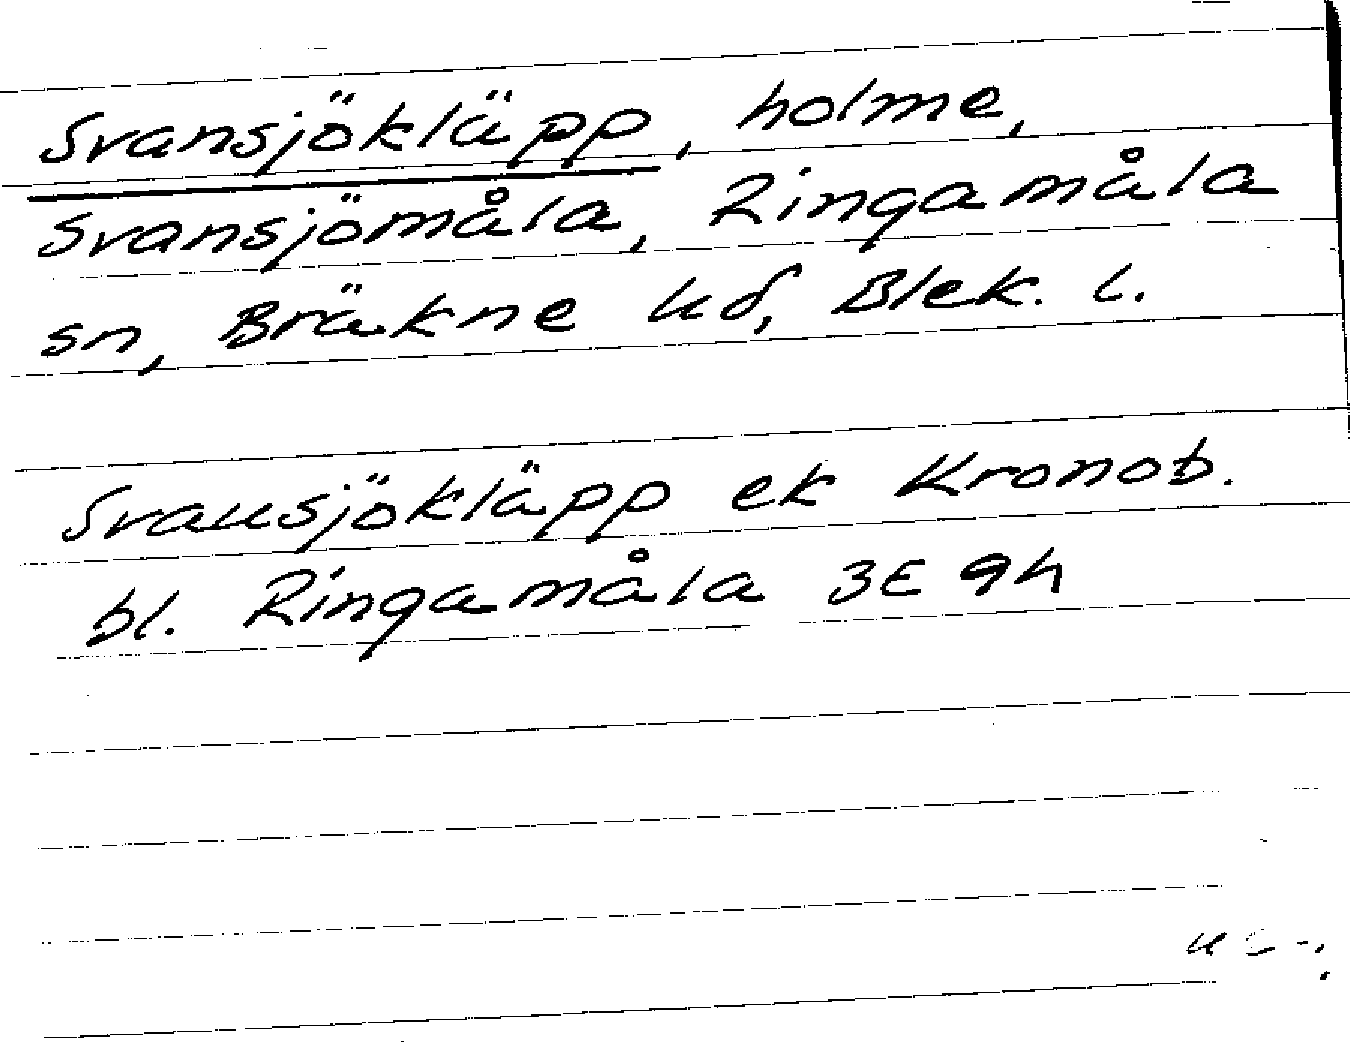 Svansjökläpp, holme,
Svansjömåla, Ringamåla
sn, Bräkne hd, Blek. l.
Svansjökläpp ek Kronob.
bl. Ringamåla 3E 9h